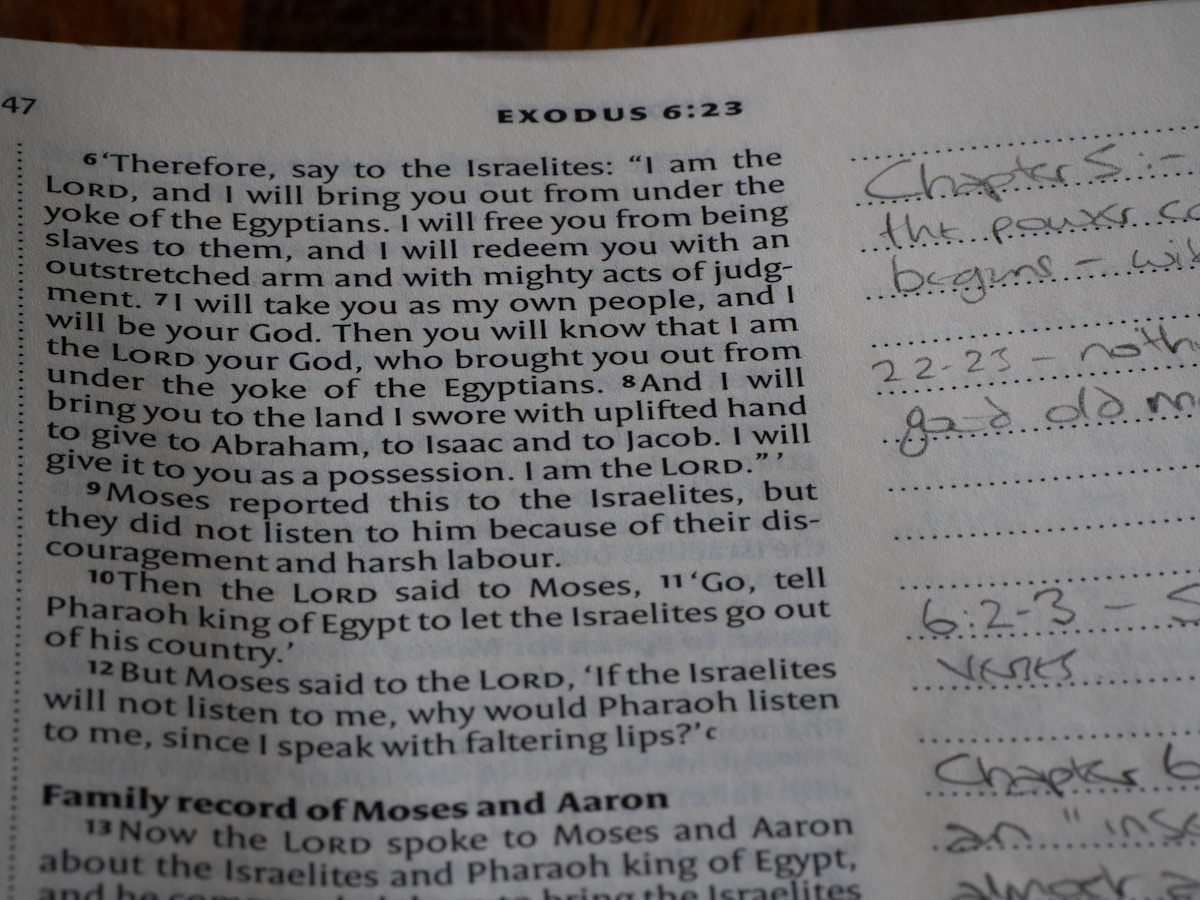 47
EXODUS 6:23
6‘Therefore, say to the Israelites: “I am the
LORD, and I will bring you out from under the
yoke of the Egyptians. I will free you from being
slaves to them, and I will redeem you with an
outstretched arm and with mighty acts of judg-
ment. 7I will take you as my own people, and I
will be your God. Then you will know that I am
the LORD your God, who brought you out from
under the yoke of the Egyptians. 8And I will
bring you to the land I swore with uplifted hand
to give to Abraham, to Isaac and to Jacob. I will
give it to you as a possession. I am the LORD.”’
9Moses reported this to the Israelites, but
they did not listen to him because of their dis-
couragement and harsh labour.
10Then the LORD said to Moses, 11‘Go, tell
Pharaoh king of Egypt to let the Israelites go out
of his country.’
12But Moses said to the LORD, ‘If the Israelites
will not listen to me, why would Pharaoh listen
to me, since I speak with faltering lips?’c
Family record of Moses and Aaron
13Now the LORD spoke to Moses and Aaron
about the Israelites and Pharaoh king of Egypt,
and he commanded them to bring the Israelites
Chapter 5:-
the power
begins -
22-23 -
old
6:2-3 -
verses
Chapter 6
an "
almost